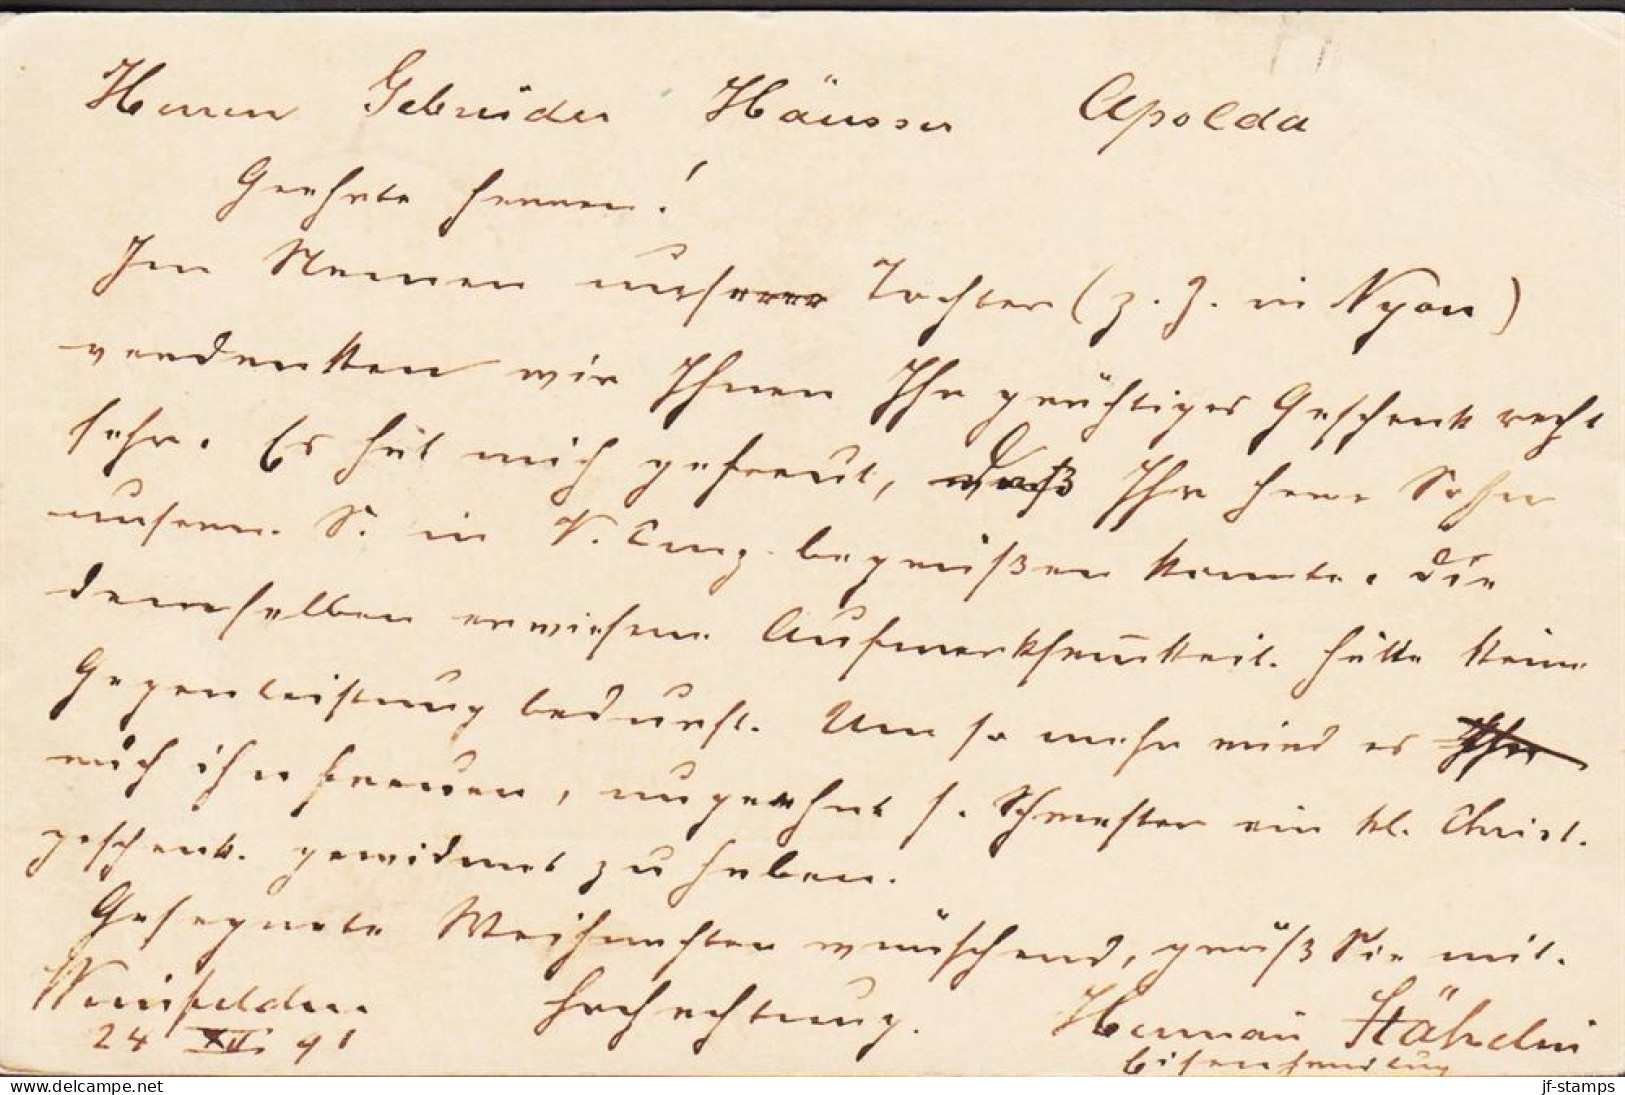 Herren Gebrüder Häusser Apolda
Geehrte Herren!
Im Namen unserer Tochter (z. Z. in Nyon)
verdanken wir Ihnen Ihr gütiges Geschenk recht
sehr. Es hat mich gefreut, daß Ihr Herr Sohn
unsern S. in begrüßen konnte. Die
demselben erwiesene Aufmerksamkeit hätte keine
Gegenleistung bedurft. Um so mehr wird es
mich freuen, s. Schwester ein kl. Christ-
geschenk gewidmet zu haben.
Gesegnete Weihnachten wünschend, grüßt Sie mit
Weinfelden Hochachtung Herman Stähelin
24 XII 91 Eisenhandlung
jf-stamps